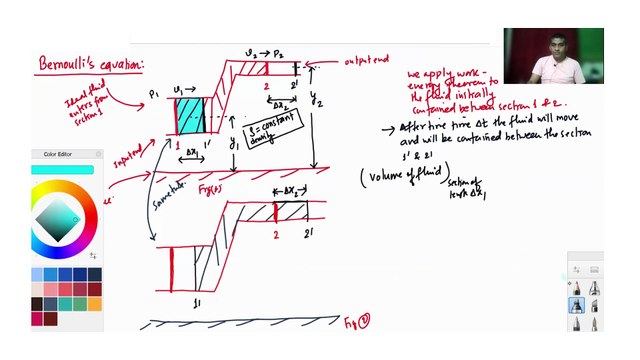 Bernoulli's equation:
Ideal fluid
enters from
section 1
P1
v1 →
v2 → P2
output end
2
2'
Δx2
y2
ρ = constant
density
y1
Input end
1
1'
Δx1
Fig(1)
Same tube
we apply work-
energy theorem to
the fluid initially
contained between section 1 & 2.
→ After time time Δt the fluid will move
and will be contained between the section
1' & 2'
(volume of fluid) section of
length Δx1
Δx2
2
2'
1'
Fig (2)
Color Editor